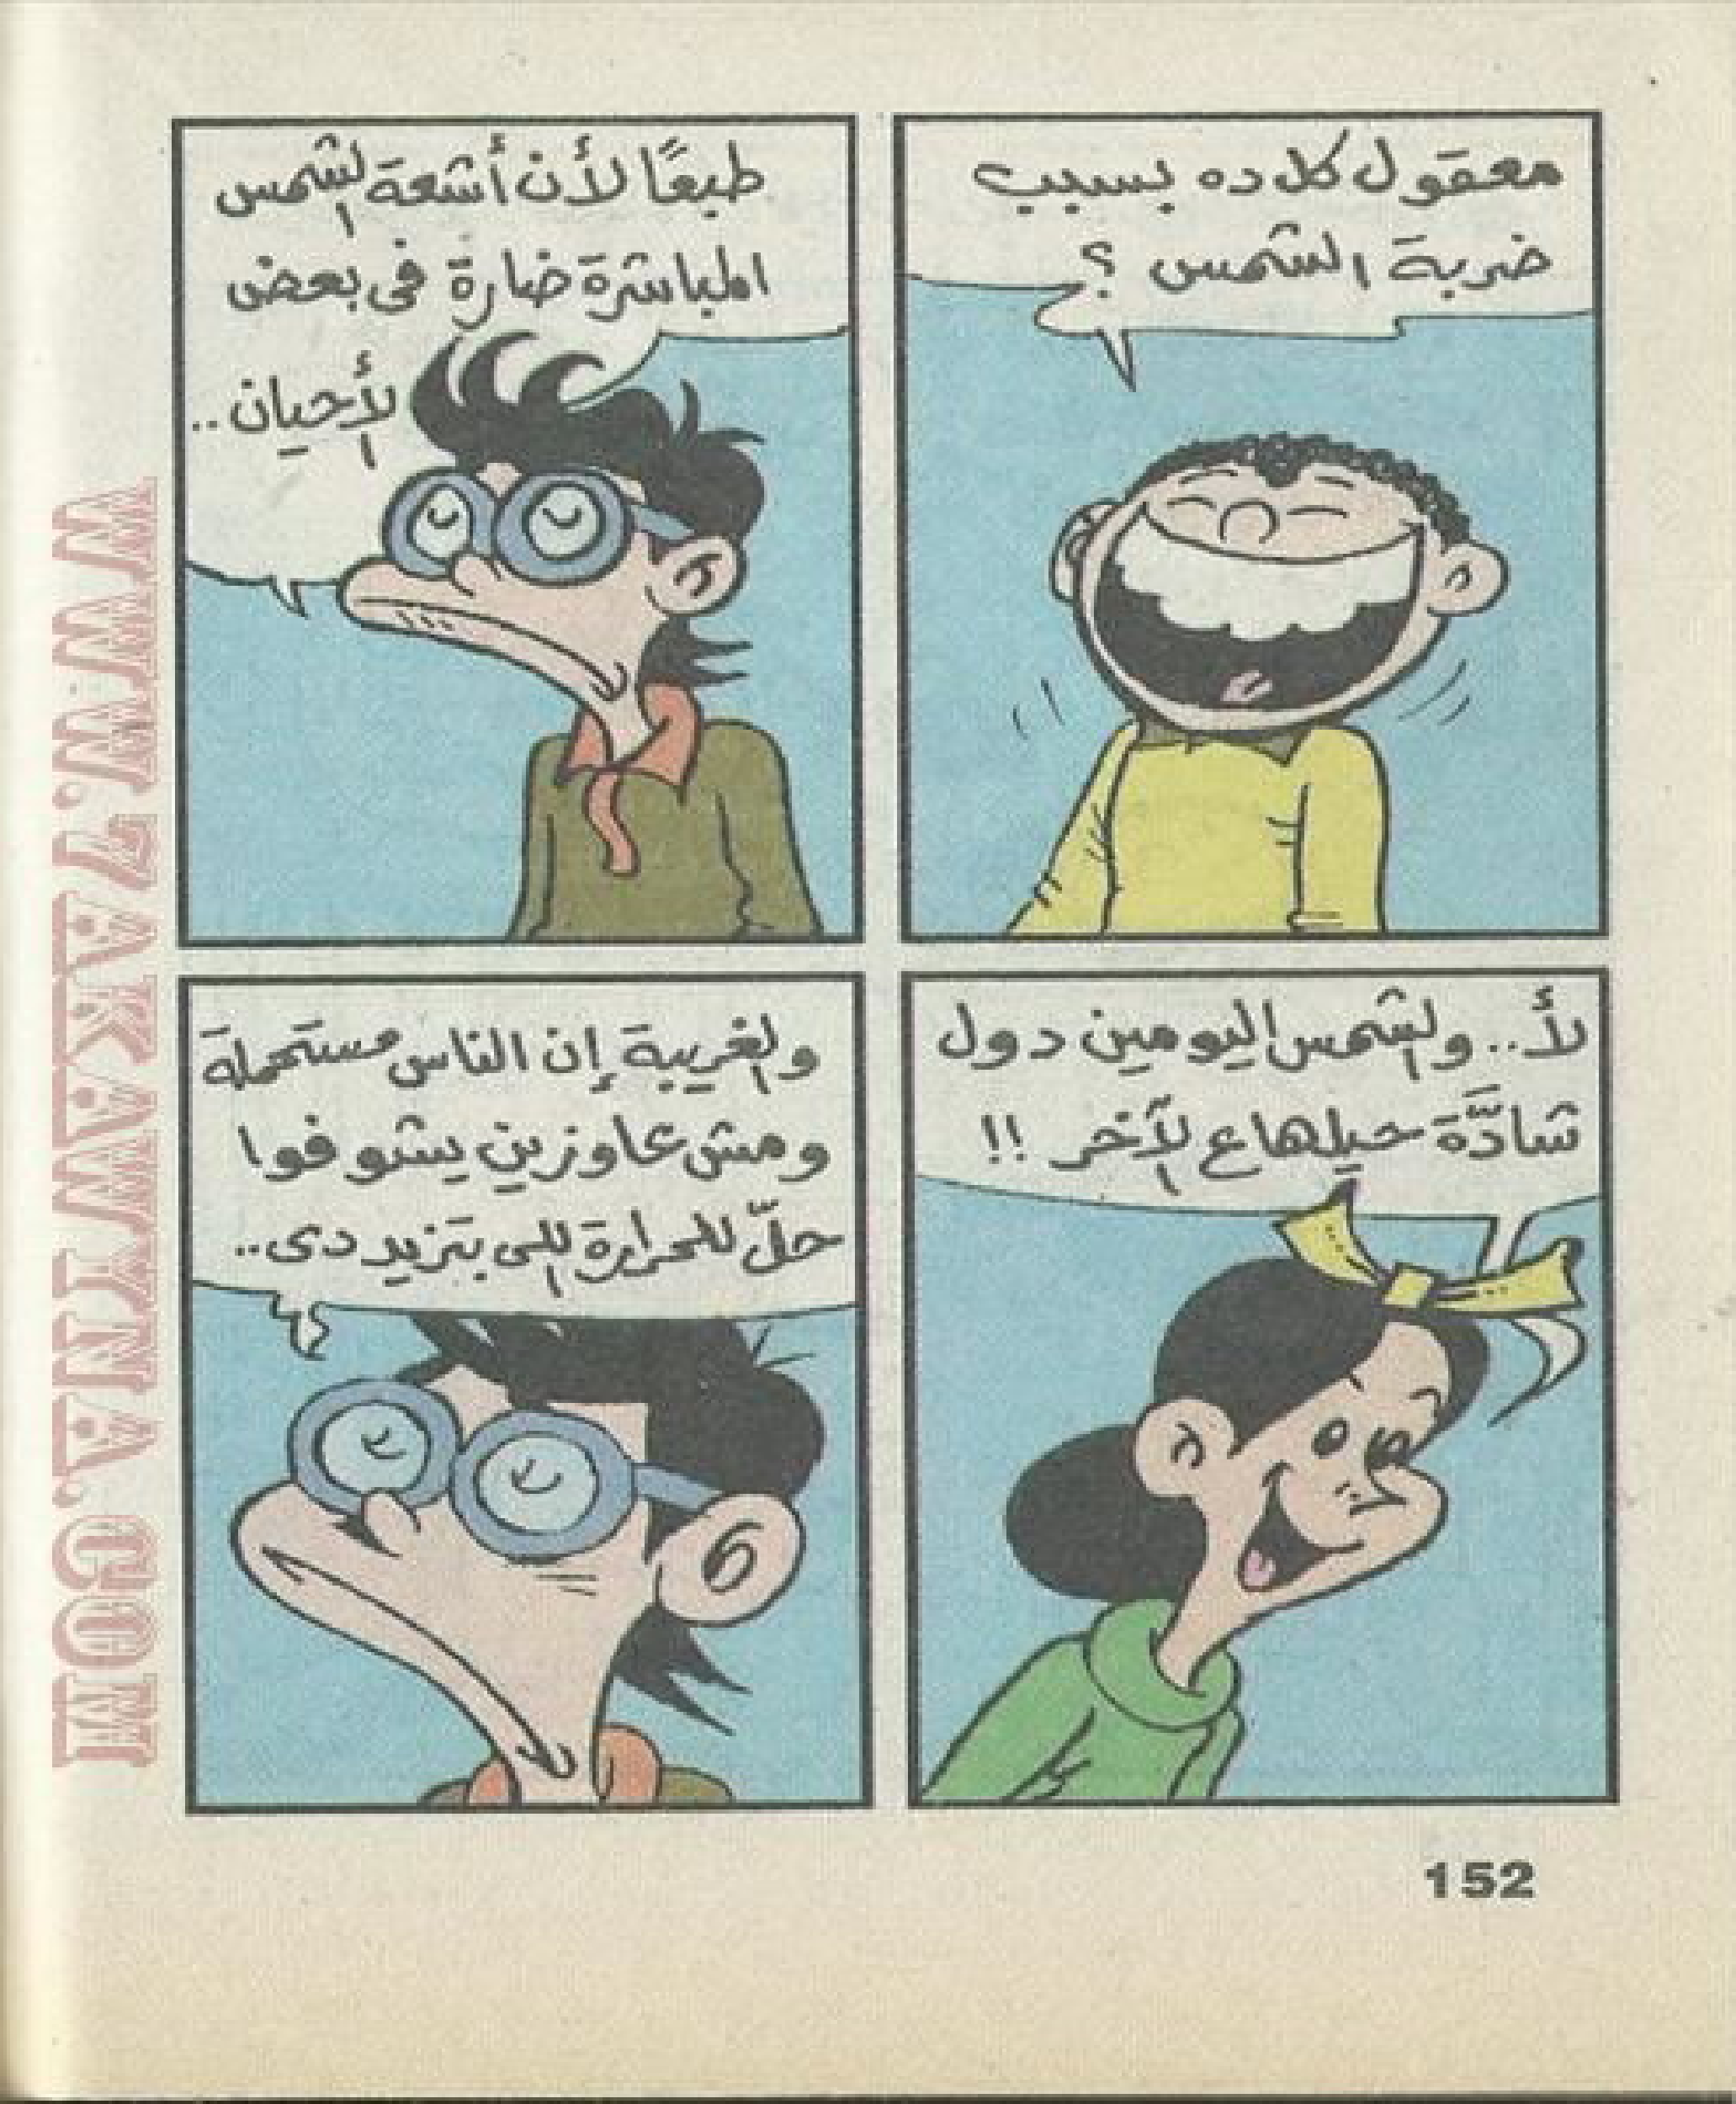 معقول كل ده بسبب
ضربة الشمس ؟
طبعًا لأن أشعة الشمس
المباشرة ضارة فى بعض
الأحيان..
لأ.. والشمس اليومين دول
شادَّة حيلها ع الآخر !!
والغريبة إن الناس مستحملة
ومش عاوزين يشوفوا
حلّ للحرارة اللى بتزيد دى..
152
WWW.7AKAWINA.COM